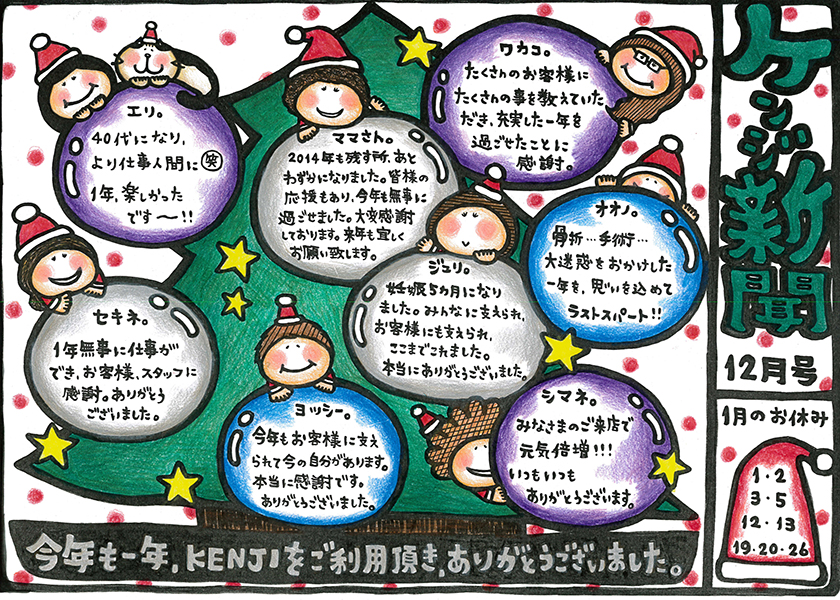 ケンジ新聞
12月号
1月のお休み
1・2
3・5
12・13
19・20・26
ワカコ。
たくさんのお客様に
たくさんの事を教えていた
だき、充実した一年を
過ごせたことに
感謝。
エリ。
40代になり、
より仕事人間に(笑)
1年、楽しかった
です〜!!
ママさん。
2014年も残す所、あと
わずかになりました。皆様の
応援もあり、今年も無事に
過ごせました。大変感謝
しております。来年も宜しく
お願い致します。
オオノ。
骨折…手術…
大迷惑をおかけした
一年を、思いを込めて
ラストスパート!!
ジュリ。
妊娠5カ月になり
ました。みんなに支えられ、
お客様にも支えられ、
ここまでこれました。
本当にありがとうございました。
セキネ。
1年無事に仕事が
でき、お客様、スタッフに
感謝。ありがとう
ございました。
ヨッシー。
今年もお客様に支え
られて今の自分があります。
本当に感謝です。
ありがとうございました。
シマネ。
みなさまのご来店で
元気倍増!!!
いつもいつも
ありがとうございます。
今年も一年、KENJIをご利用頂き、ありがとうございました。